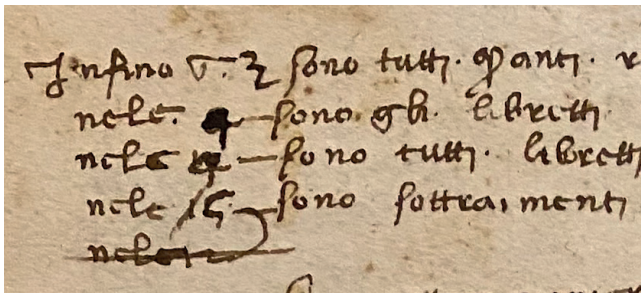 Infino V. 3 sono tutti.
nele. sono gli. libretti
nele sono tutti. libretti
nele 15 sono sottraimenti
nele